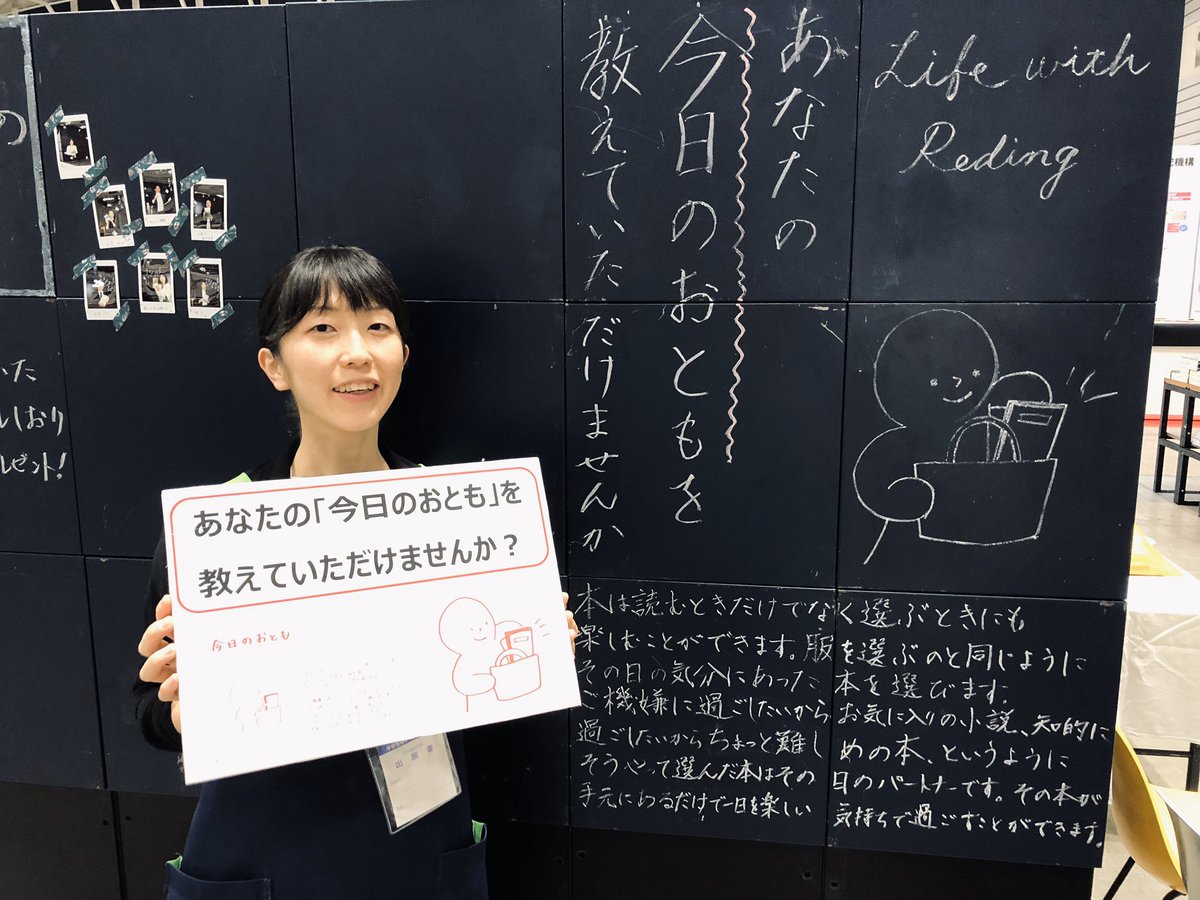 Life with
Reding
あなたの
今日のおともを
教えていただけませんか
本は読むときだけでなく選ぶときにも
楽しむことができます。服を選ぶのと同じように
その日の気分にあった本を選びます.
ご機嫌に過ごしたいからお気に入りの小説、知的に
過ごしたいからちょっと難しめの本、というように
そうやって選んだ本はその日のパートナーです。その本が
手元にあるだけで一日を楽しい気持ちで過ごすことができます。
あなたの「今日のおとも」を
教えていただけませんか?
今日のおとも
出展者
の
いた
しおり
レゼント!
機構